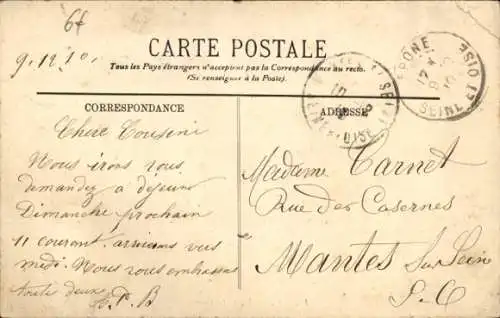 6f
9.12.10.
CARTE POSTALE
Tous les Pays étrangers n'acceptent pas la Correspondance au recto.
(Se renseigner à la Poste).
CORRESPONDANCE
Chère Cousine
Nous irons vous
demandez a dejeuner
Dimanche prochain
11 courant. arriverons vers
midi. Nous vous embrassons
toute deux
P. B
ADRESSE
Madame Carnet
Rue des Casernes
Mantes Sur Seine
S-O
SEINE ET OISE